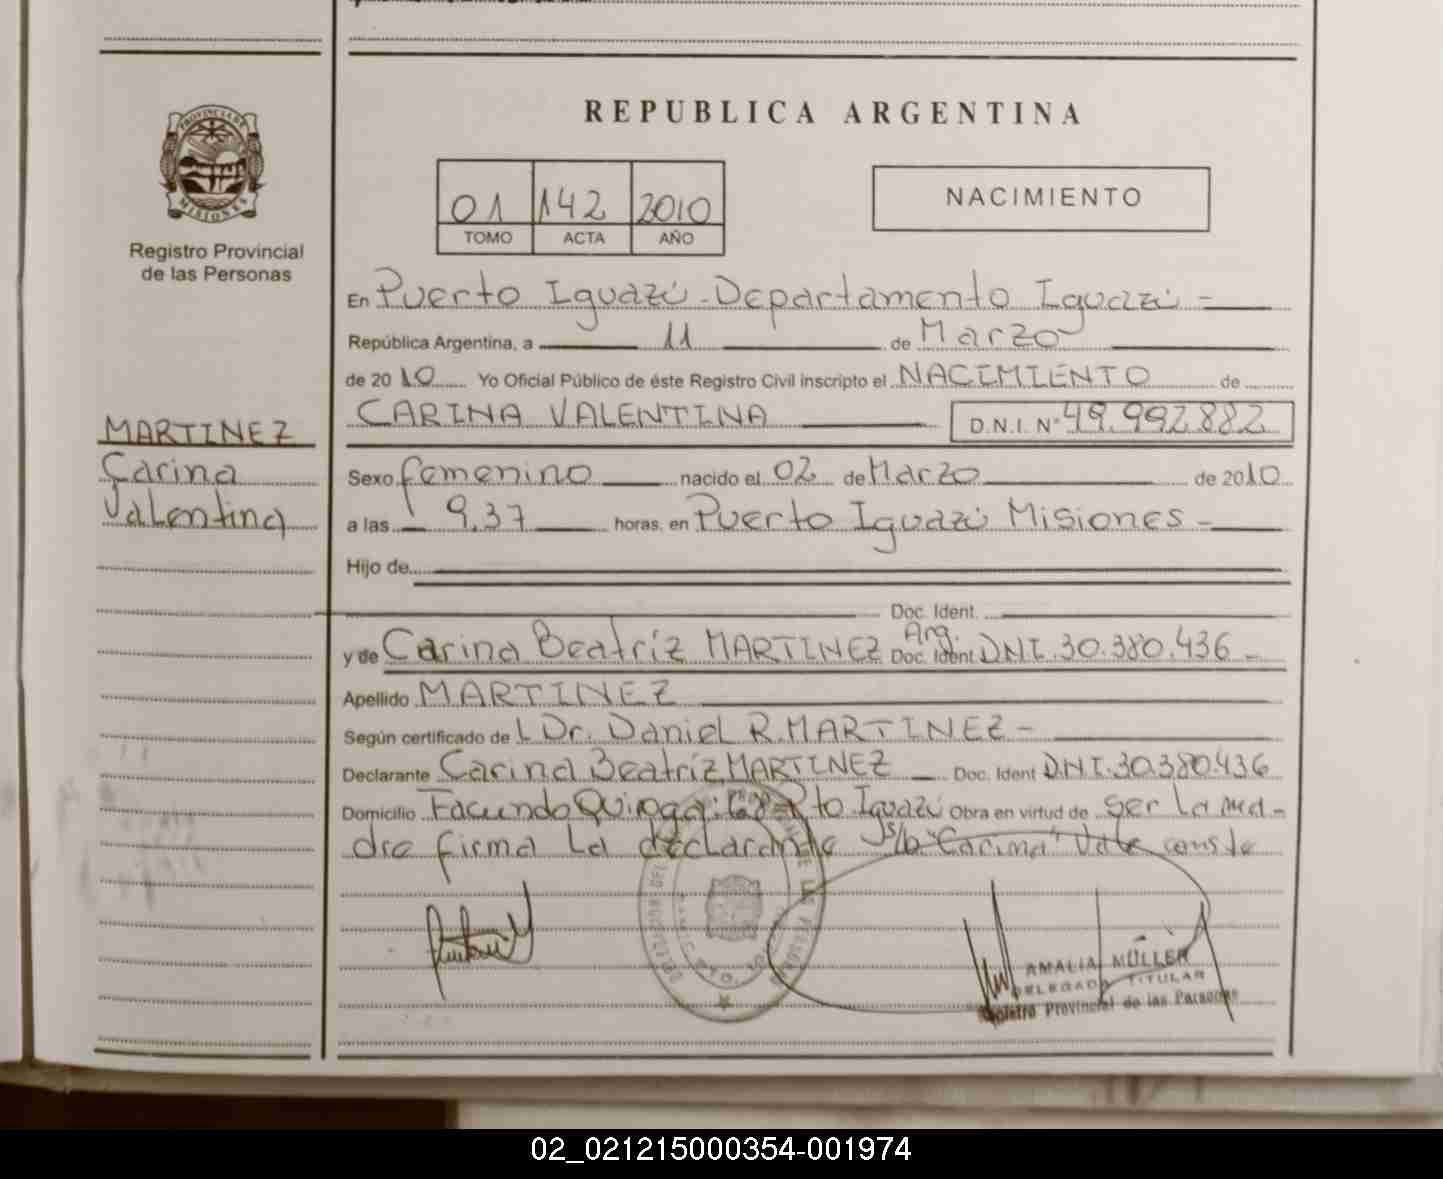 REPUBLICA ARGENTINA
PROVINCIA DE
MISIONES
Registro Provincial
de las Personas
01 142 2010
TOMO ACTA AÑO
NACIMIENTO
En Puerto Iguazú - Departamento Iguazú -
República Argentina, a 11 de Marzo
de 2010 Yo Oficial Público de éste Registro Civil inscripto el NACIMIENTO de
CARINA VALENTINA D.N.I. N° 49.992.882
MARTINEZ
Carina
Valentina
Sexo femenino nacido el 02 de Marzo de 2010
a las 9,37 horas, en Puerto Iguazú Misiones -
Hijo de
Doc. Ident.
y de Carina Beatríz MARTINEZ Arg. Doc. Ident DNI.30.380.436 -
Apellido MARTINEZ
Según certificado de L Dr. Daniel R. MARTINEZ -
Declarante Carina Beatríz MARTINEZ Doc. Ident D.N.I.30.380.436
Domicilio Facundo Quiroga Pto Iguazú Obra en virtud de ser La ma-
dre firma La declarante s/b "Carina" Vale conste
AMALIA MÜLLER
DELEGADA TITULAR
Registro Provincial de las Personas
02_021215000354-001974